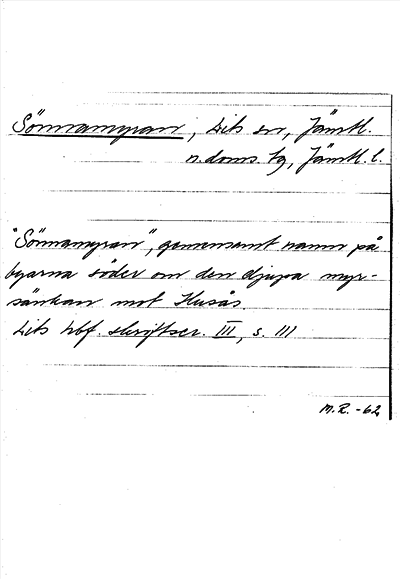 Sönnamyran, Lits sn, Jämtl.
n. doms. tg, Jämtl. l.
"Sönnamyran", gemensamt namn på
byarna söder om den djupa myr-
sänkan mot Husås.
Lits hbf. skriftser. III, s. 111
M.R. -62